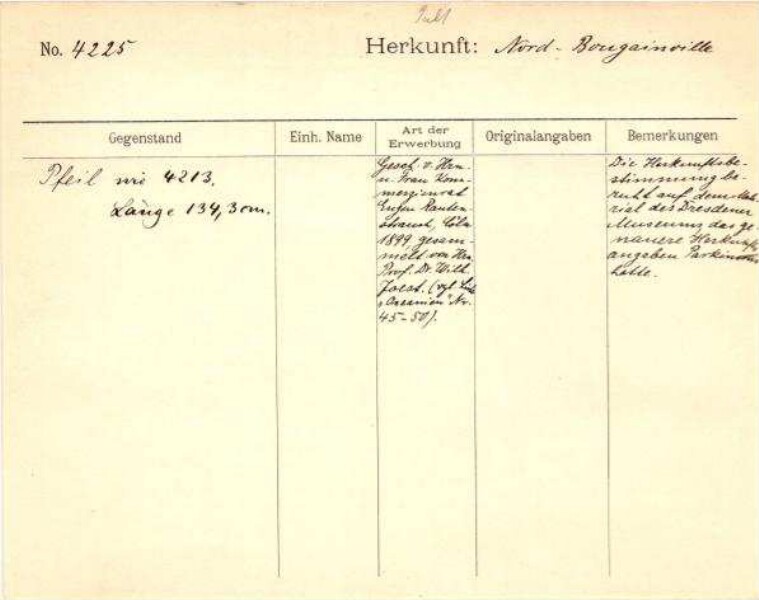 No. 4225
Herkunft: Nord-Bougainville
Gegenstand
Einh. Name
Art der
Erwerbung
Originalangaben
Bemerkungen
Pfeil wie 4213.
Länge 134,3 cm.
Gesch. v. Hrn.
u. Frau Kom-
merzienrat
Eugen Rauten-
strauch, Cöln
1899, gesam-
melt von Hrn.
Prof. Dr. Wilh.
Joest. (vgl.
"Oceanien" Nr.
45-50).
Die Herkunftsbe-
stimmung be-
ruht auf dem Mate-
rial des Dresdener
Museums, das ge-
nauere Herkunfts-
angaben Parkinsons
hatte.